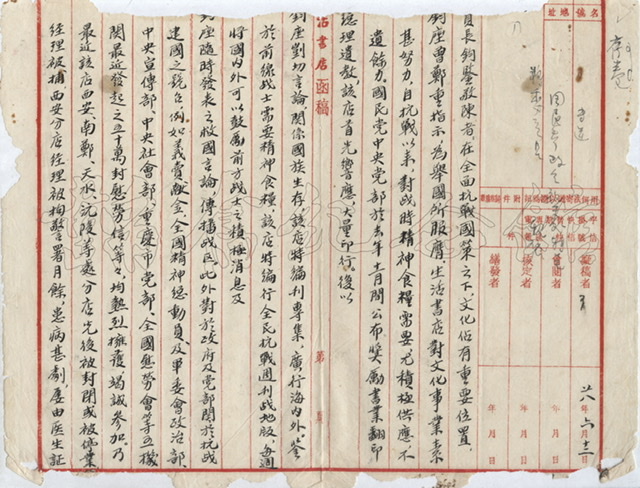 名稱
地址
擬稿者
核閱者
核定者
繕發者
年 月 日
年 月 日
年 月 日
廿八年六月十二日
員長鈞鑒敬陳者，在全面抗戰國策之下文化佔有重要位置，
鈞座曾鄭重指示，為舉國所服膺，生活書店對文化事業素
甚努力，自抗戰以來，對戰時精神食糧需要尤積極供應不
遺餘力，國民黨中央黨部於去年十一月間公布獎勵書業翻印
總理遺教，該店首先響應，大量印行。後以
活書店函稿
第 頁
鈞座剴切言論，關係國族生存，該店特編刊專集，廣行海內外，鑒
於前線戰士需要精神食糧，該店特編行全民抗戰週刊戰地版，每週
將國內外可以鼓勵前方戰士之積極消息及
鈞座隨時發表之救國言論，傳播戰區。此外對於政府及黨部關於抗戰
建國之號召，例如義賣獻金、全國精神總動員、及軍委會政治部、
中央宣傳部、中央社會部、重慶市黨部、全國慰勞會等五機
關最近發起之五十萬封慰勞信等々，均熱烈擁護，竭誠參加。乃
最近該店西安、南鄭、天水、沅陵等處分店先後被封閉或被停業
經理被捕，西安分店經理被拘警署月餘，患病甚劇，屢由醫生証